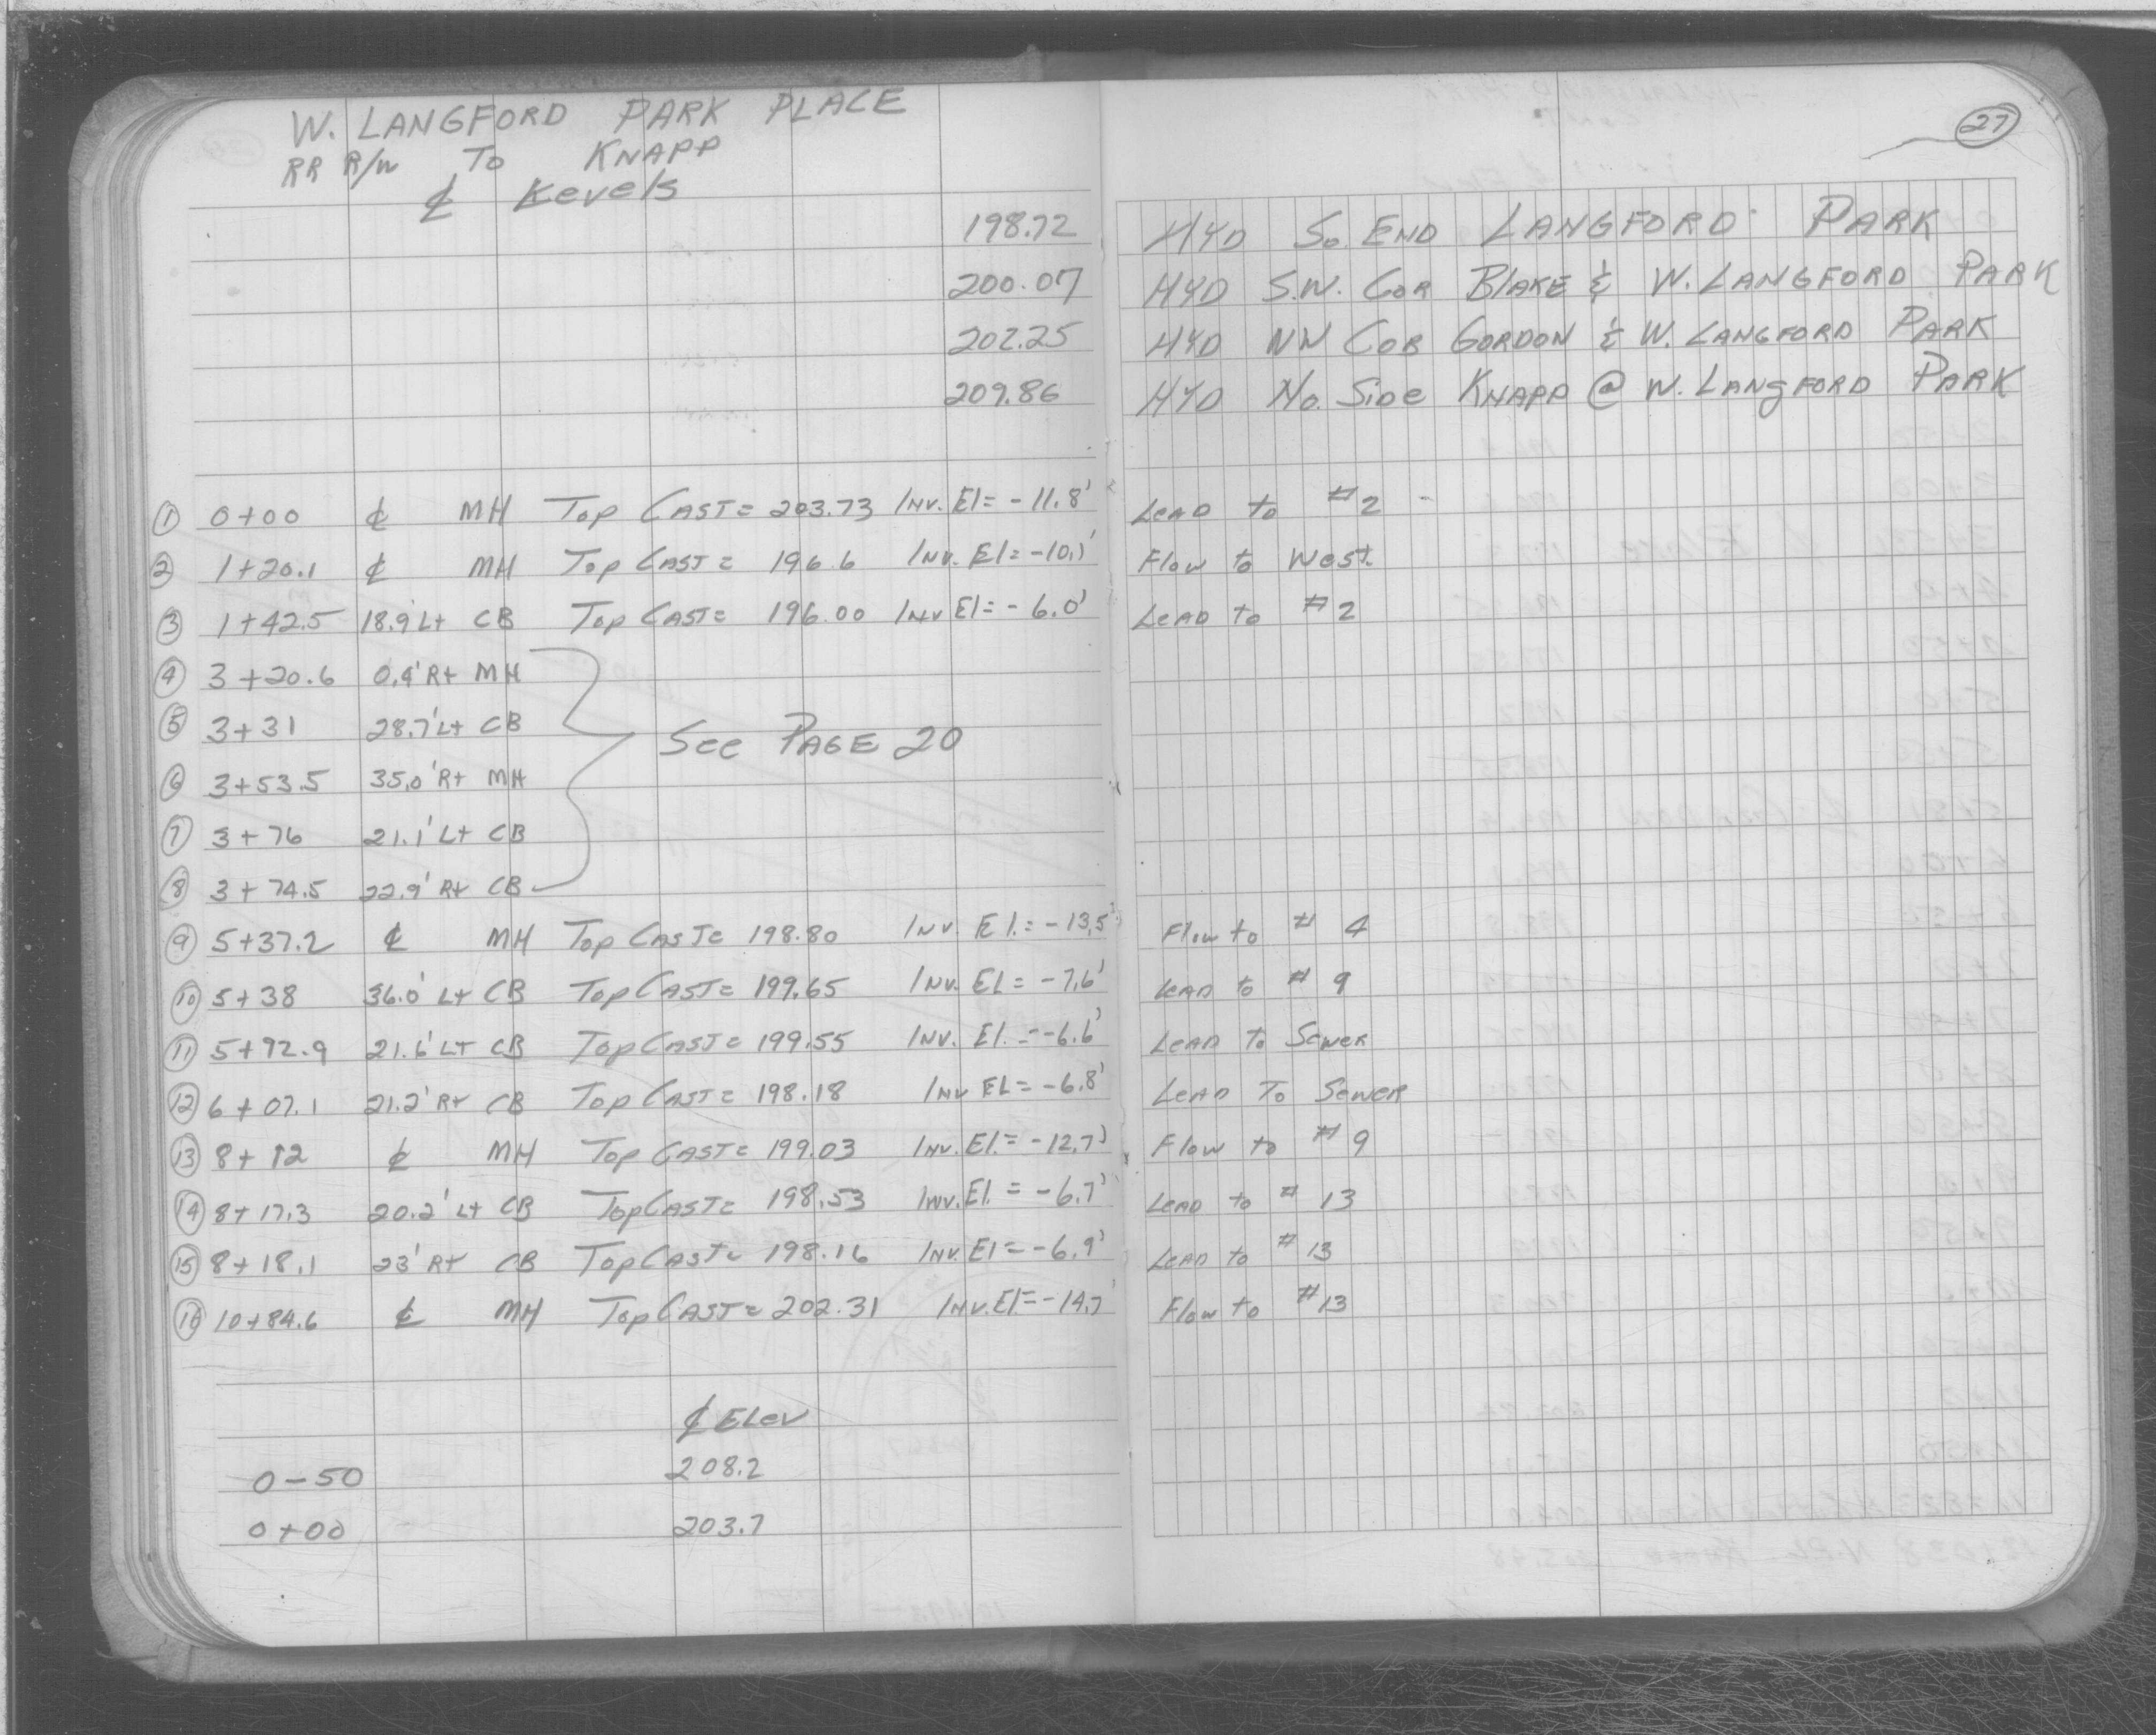 27
W. LANGFORD PARK PLACE
RR R/W To KNAPP
℄ Levels
198.72 HYD So. END LANGFORD PARK
200.07 HYD S.W. COR BLAKE & W. LANGFORD PARK
202.25 HYD NW COR GORDON & W. LANGFORD PARK
209.86 HYD No. Side KNAPP @ W. LANGFORD PARK
① 0+00 ℄ MH Top CAST= 203.73 INV. El= -11.8' LEAD to #2
② 1+20.1 ℄ MH Top CAST= 196.6 INV. El= -10.1' Flow to West
③ 1+42.5 18.9' Lt CB Top CAST= 196.00 INV El= -6.0' LEAD to #2
④ 3+20.6 0.4' Rt MH
⑤ 3+31 28.7' Lt CB
See PAGE 20
⑥ 3+53.5 35.0' Rt MH
⑦ 3+76 21.1' Lt CB
⑧ 3+74.5 22.9' Rt CB
⑨ 5+37.2 ℄ MH Top CAST= 198.80 INV. El.= -13.5' Flow to # 4
⑩ 5+38 36.0' Lt CB Top CAST= 199.65 INV. El= -7.6' LEAD to # 9
⑪ 5+92.9 21.6' LT CB Top CAST= 199.55 INV. El.= -6.6' LEAD to Sewer
⑫ 6+07.1 21.2' Rt CB Top CAST= 198.18 INV EL= -6.8' LEAD To Sewer
⑬ 8+12 ℄ MH Top CAST= 199.03 INV. El.= -12.7' Flow to #9
⑭ 8+17.3 20.2' Lt CB Top CAST= 198.53 INV. El. = -6.7' LEAD to # 13
⑮ 8+18.1 23' Rt CB Top CAST= 198.16 INV. El= -6.9' LEAD to # 13
⑯ 10+84.6 ℄ MH Top CAST= 202.31 INV. El= -14.7' Flow to #13
℄ ELev
0-50 208.2
0+00 203.7